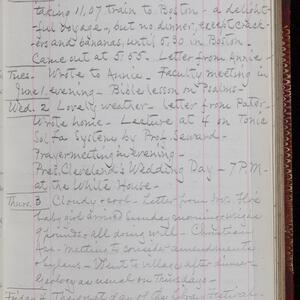 taking 11.07 train to Boston - a delight-
ful voyage, but no dinner, except crack-
ers and bananas, until 5.30 in Boston.
Came out at 5.55. Letter from Annie -
Tues. Wrote to Annie - Faculty meeting in
June 1. evening - Bible lesson on Psalms -
Wed. 2 Lovely weather - letter from Pater -
Wrote home - Lecture at 4 on Tonic
Sol Fa System by Prof. Seward -
Prayermeeting in evening -
Pres. Cleveland's Wedding Day - 7 P.M.
at the White House -
Thurs. 3 Cloudy & cool - Letter from Mrs.
baby girl arrived Sunday morning
pounds, all doing well - Christian
meeting to consider amendments
to bylaws - Went to village after dinner
as usual on Thursdays -
Friday 4